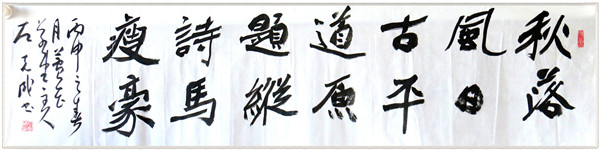 秋風古道題詩瘦
落日平原縱馬豪
丙申之春
月
主人
石